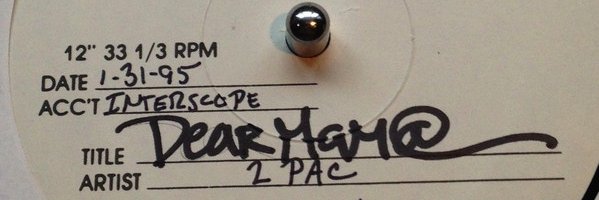 12" 33 1/3 RPM
DATE 1-31-95
ACC'T INTERSCOPE
TITLE DEAR MAM@
ARTIST 2 PAC